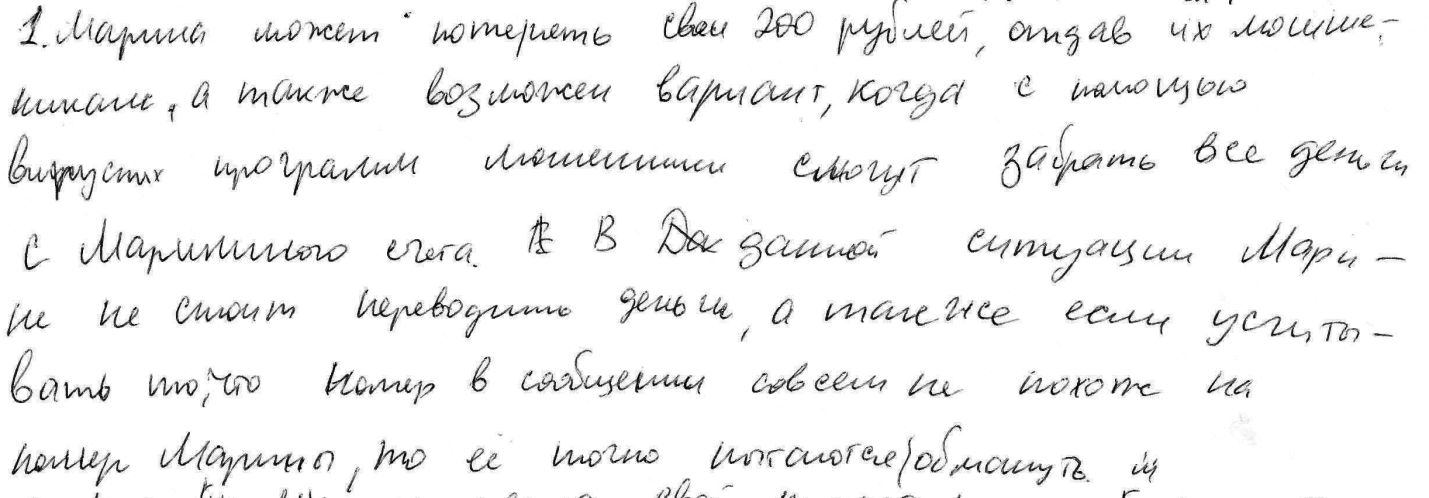 1. Марина может потерять свои 200 рублей, отдав их мошше-
никам, а также возможен вариант, когда с помощью
вирусних программ мошенники смогут забрать все деньги
с Марининого счета. В данной ситуации Мари-
не не стоит переводить деньги, а также если усчиты-
вать то, что номер в сообщении совсем не похож на
номер Марины, то её точно пытаются обмануть. и
свой